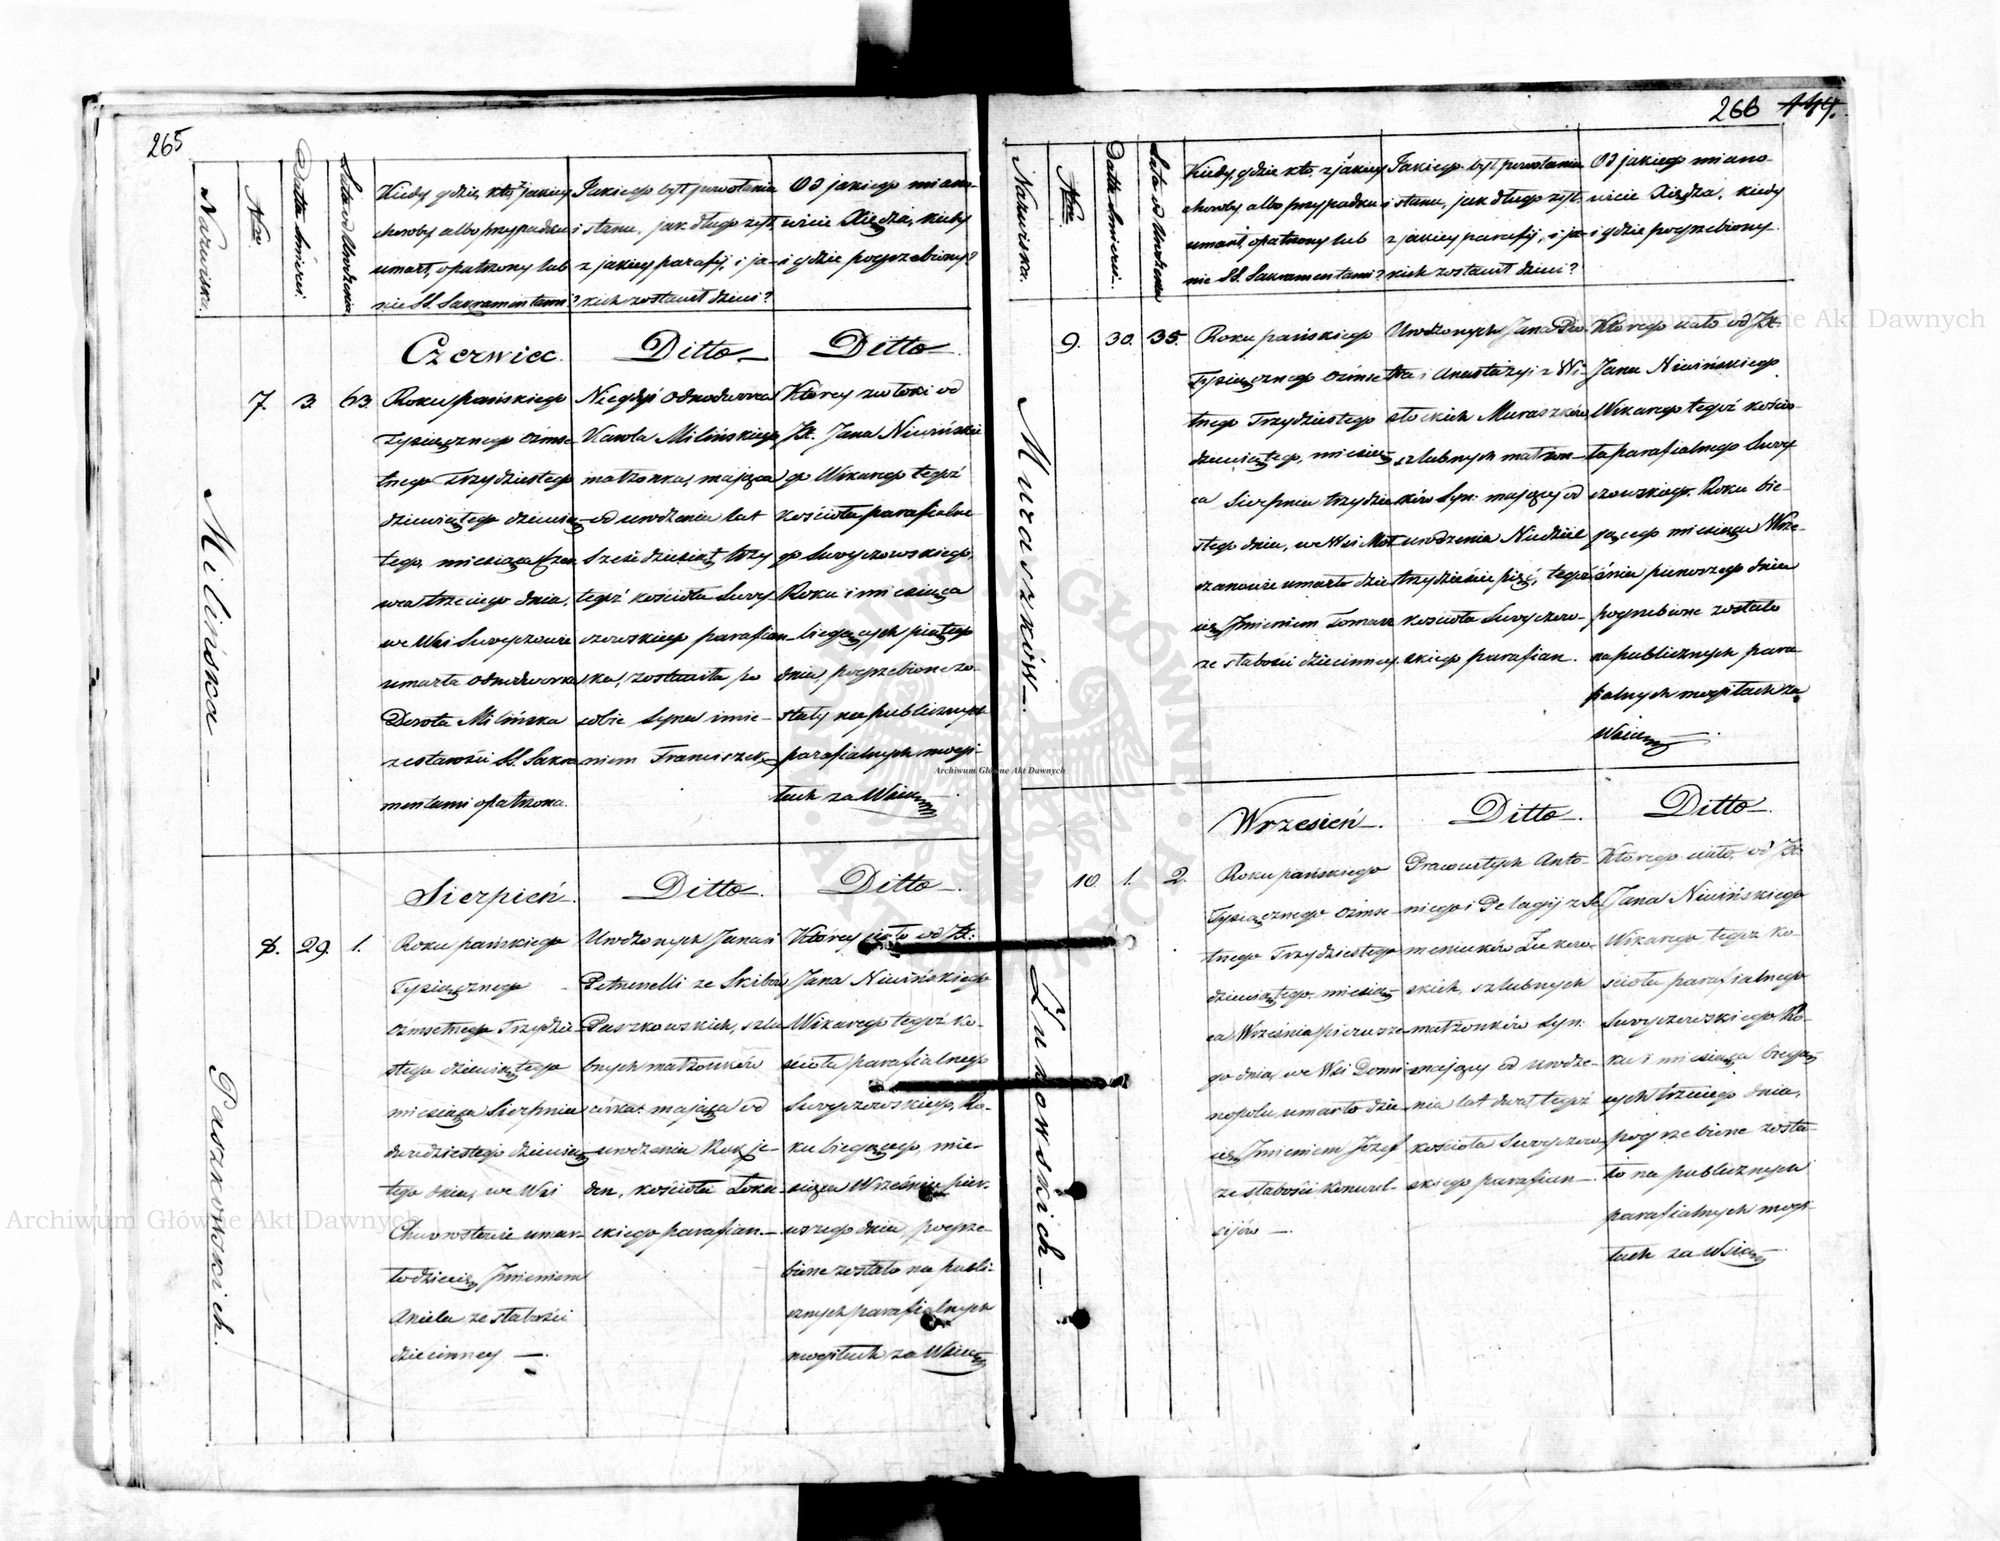 265
Nazwiska.
Nro
Datta śmierci.
Lata od Urodzenia
Kiedy, gdzie, kto, z jakiey
choroby albo przypadku
umarł, opatrzony lub
nie SS. Sakramentami?
Jakiego był powołania
i stanu, jak długo żył
z jakiey parafij, i ja-
kich zostawił dzieci?
Od jakiego miano-
wicie Xiędza, kiedy
i gdzie pogrzebiony?
Milińska —
Czerwiec.
7. 3. 63.
Roku pańskiego
tysiącznego ośmse-
tnego trzydziestego
dziewiątego dziewią-
tego, miesiąca Czer
wca trzeciego dnia,
we Wsi Swryczowie
umarła odnodworka
Dorota Milińska
z starości SS. Sakra
mentami opatrzona.
Ditto —
Niegdyś odnodworca
Karola Milińskiego
małżonka, mająca
od urodzenia lat
sześćdziesiąt trzy
tegoż kościoła Swry
czowskiego parafian
ka, zostawiła po
sobie syna imie-
niem Franciszek,
Ditto —
Którey zwłoki od
JX. Jana Niwińskie
go Wikarego tegoż
kościoła parafialne
go Swryczowskiego,
Roku i miesiąca
biegących piątego
dnia, pogrzebione zo-
stały na publicznych
parafialnych mogi-
łach za Wsią
Paszkowskich.
Sierpień.
8. 29. 1.
Roku pańskiego
Tysiącznego
ośmsetnego Trzydzie-
stego dziewiątego
miesiąca Sierpnia
dwudziestego dziewią-
tego dnia, we Wsi
Chworostowie umar-
ło dziecię Imieniem
Aniela ze słabości
dziecinney —.
Ditto.
Urodzonych Jana i
Petrunelli ze Skibów
Paszkowskich, szlu
bnych małżonków
córka: mająca od
urodzenia Rok je-
den, kościoła Łoka-
ckiego parafian. —
Ditto —.
Którey ciało od JX:
Jana Niwińskiego
Wikarego tegoż ko-
ścioła parafialnego
Swryczowskiego, Ro-
ku biegącego, mie-
siąca Września pier-
wszego dnia, pogrze-
bione zostało na publi-
cznych parafialnych
mogiłach za Wsią
266 447.
Nazwiska.
Nro
Datta śmierci.
Lata od Urodzenia
Kiedy, gdzie, kto, z jakiey
choroby albo przypadku
umarł opatrzony lub
nie SS. Sakramentami?
Jakiego był powołania
i stanu, jak długo żył
z jakiey parafij, i ja-
kich zostawił dzieci?
Od jakiego miano-
wicie Xiędza, kiedy
i gdzie pogrzebiony.
Muraszków —.
9. 30. 35.
Roku pańskiego
Tysiącznego ośmse
tnego Trzydziestego
dziewiątego, miesią-
ca Sierpnia trzydzie
stego dnia, we Wsi Moł
czanowie umarło dzie
cię Imieniem Tomasz
ze słabości dziecinney.
Urodzonych Jana Pio-
tra i Anastazyi z Wi-
słockich Muraszków
szlubnych małżon-
ków syn: mający od
urodzenia Niedziel
trzydzieście pięć, tegoż
kościoła Swryczow-
skiego parafian.
Którego ciało od JX.
Jana Niwińskiego
Wikarego tegoż kościo-
ła parafialnego Swry
czowskiego. Roku bie-
jącego miesiąca Wrze-
śnia pierwszego dnia
pogrzebione zostało
na publicznych para
fialnych mogiłach za
Wsią —.
Łukowskich —.
Wrzesień —.
10. 1. 2.
Roku pańskiego
Tysiącznego ośmse-
tnego Trzydziestego
dziewiątego, miesią-
ca Września pierwsze
go dnia, we Wsi Domi
nopolu, umarło dzie-
cię Imieniem Józef
ze słabości konwul-
sijów —.
Ditto —.
Pracowitych Anto-
niego i Pelagij z Se
meniuków Łukow-
skich, szlubnych
małżonków syn:
mający od urodze-
nia lat dwa, tegoż
kościoła Swryczow-
skiego parafian —.
Ditto —.
Którego ciało, od JX.
Jana Niwińskiego
Wikarego tegoż ko-
ścioła parafialnego
Swryczowskiego, Ro-
ku i miesiąca biegą-
cych trzeciego dnia,
pogrzebione zosta-
ło na publicznych
parafialnych mogi-
łach za Wsią —
Archiwum Główne Akt Dawnych
Archiwum Główne Akt Dawnych
Archiwum Główne Akt Dawnych